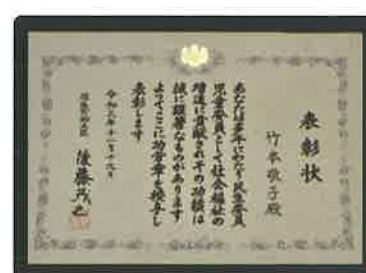 表彰状
竹本敬子殿
あなたは多年にわたり民生委員
児童委員として社会福祉の
増進に貢献されその功績は
誠に顕著なものがあります
よってここに功労章を授与し
表彰します
令和三年十一月十九日
厚生労働大臣 後藤茂之